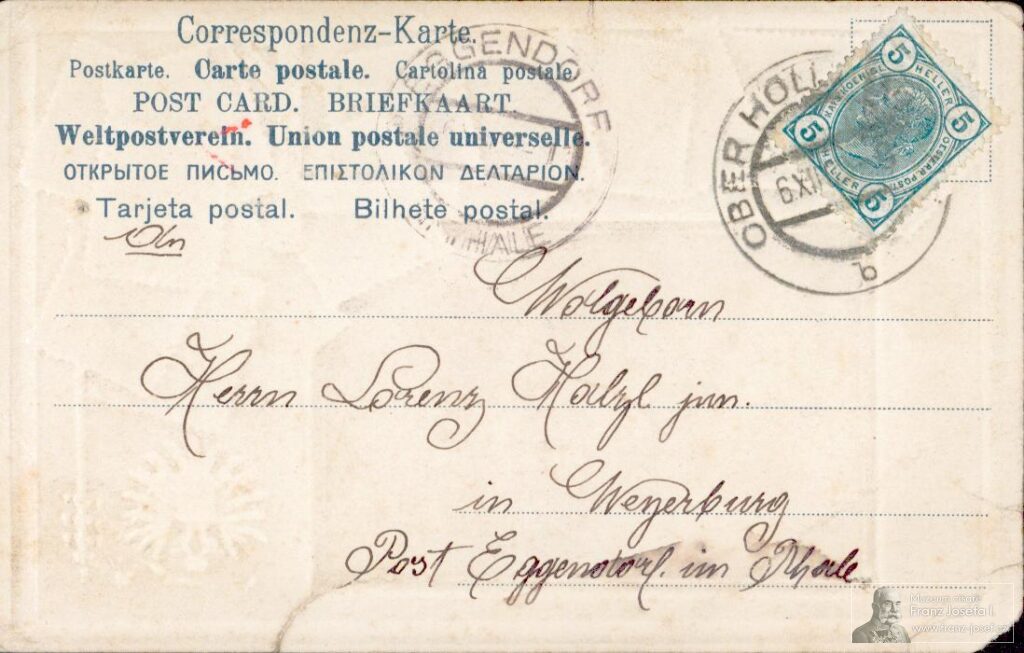 Correspondenz-Karte.
Postkarte. Carte postale. Cartolina postale
POST CARD. BRIEFKAART.
Weltpostverein. Union postale universelle.
ОТКРЫТОЕ ПИСЬМО. ΕΠΙΣΤΟΛΙΚΟΝ ΔΕΛΤΑΡΙΟΝ.
Tarjeta postal. Bilhete postal.
EGGENDORF
THALE
OBER HOLL
6 XII
b
5 HELLER 5
5 HELLER 5
Wolgeborn
Herrn Lorenz Holzl jun.
in Weyerburg
Post Eggendorf im Thale
Muzeum císaře
Franz Josefa I.
www.franz-josef.cz